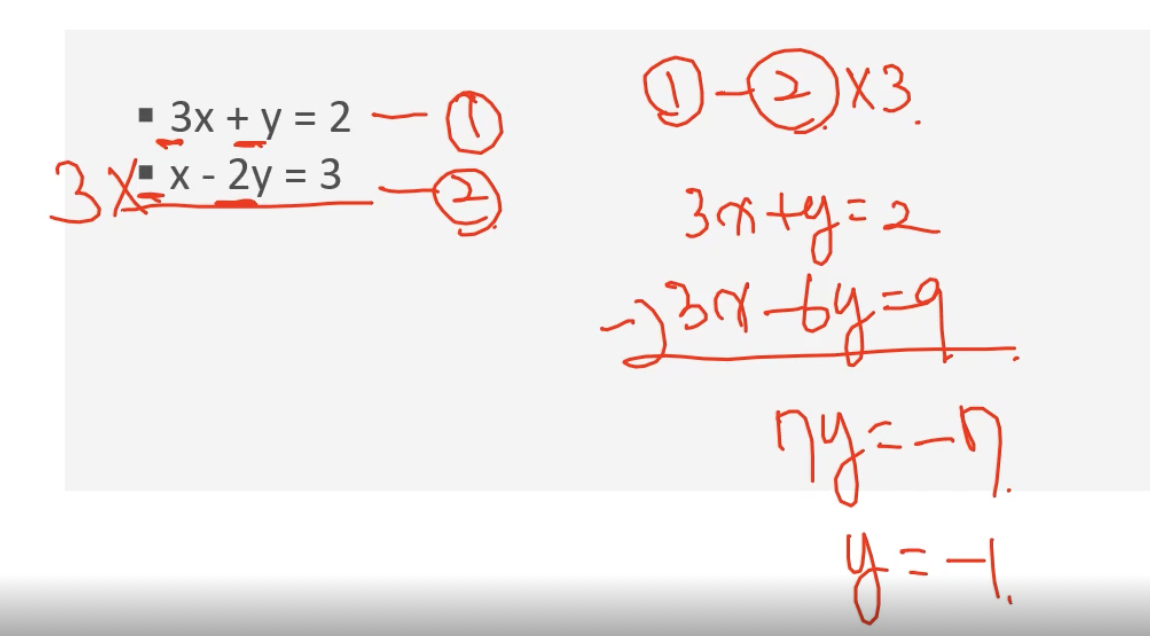 ▪ 3x + y = 2 — ①
3X ▪ x - 2y = 3 — ②
① - ② X3.
3x+y=2
-)3x-6y=9
7y=-7.
y=-1.